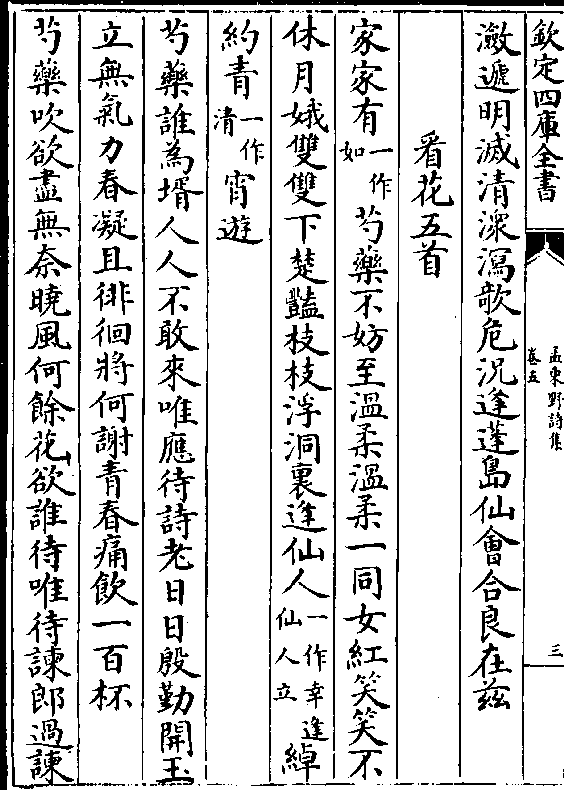 欽定四庫全書
孟東野詩集
卷五
三
潋遞明滅清深瀉欹危況逢蓬島仙會合良在兹
看花五首
家家有一作如芍藥不妨至溫柔溫柔一同女紅笑笑不
休月娥雙雙下楚豔枝枝浮洞裏逢仙人一作幸逢仙人立綽
約青一作清宵遊
芍藥誰為壻人人不敢來唯應待詩老日日殷勤開玉
立無氣力春凝且徘徊將何謝青春痛飲一百杯
芍藥吹欲盡無奈曉風何餘花欲誰待唯待諫郎過諫